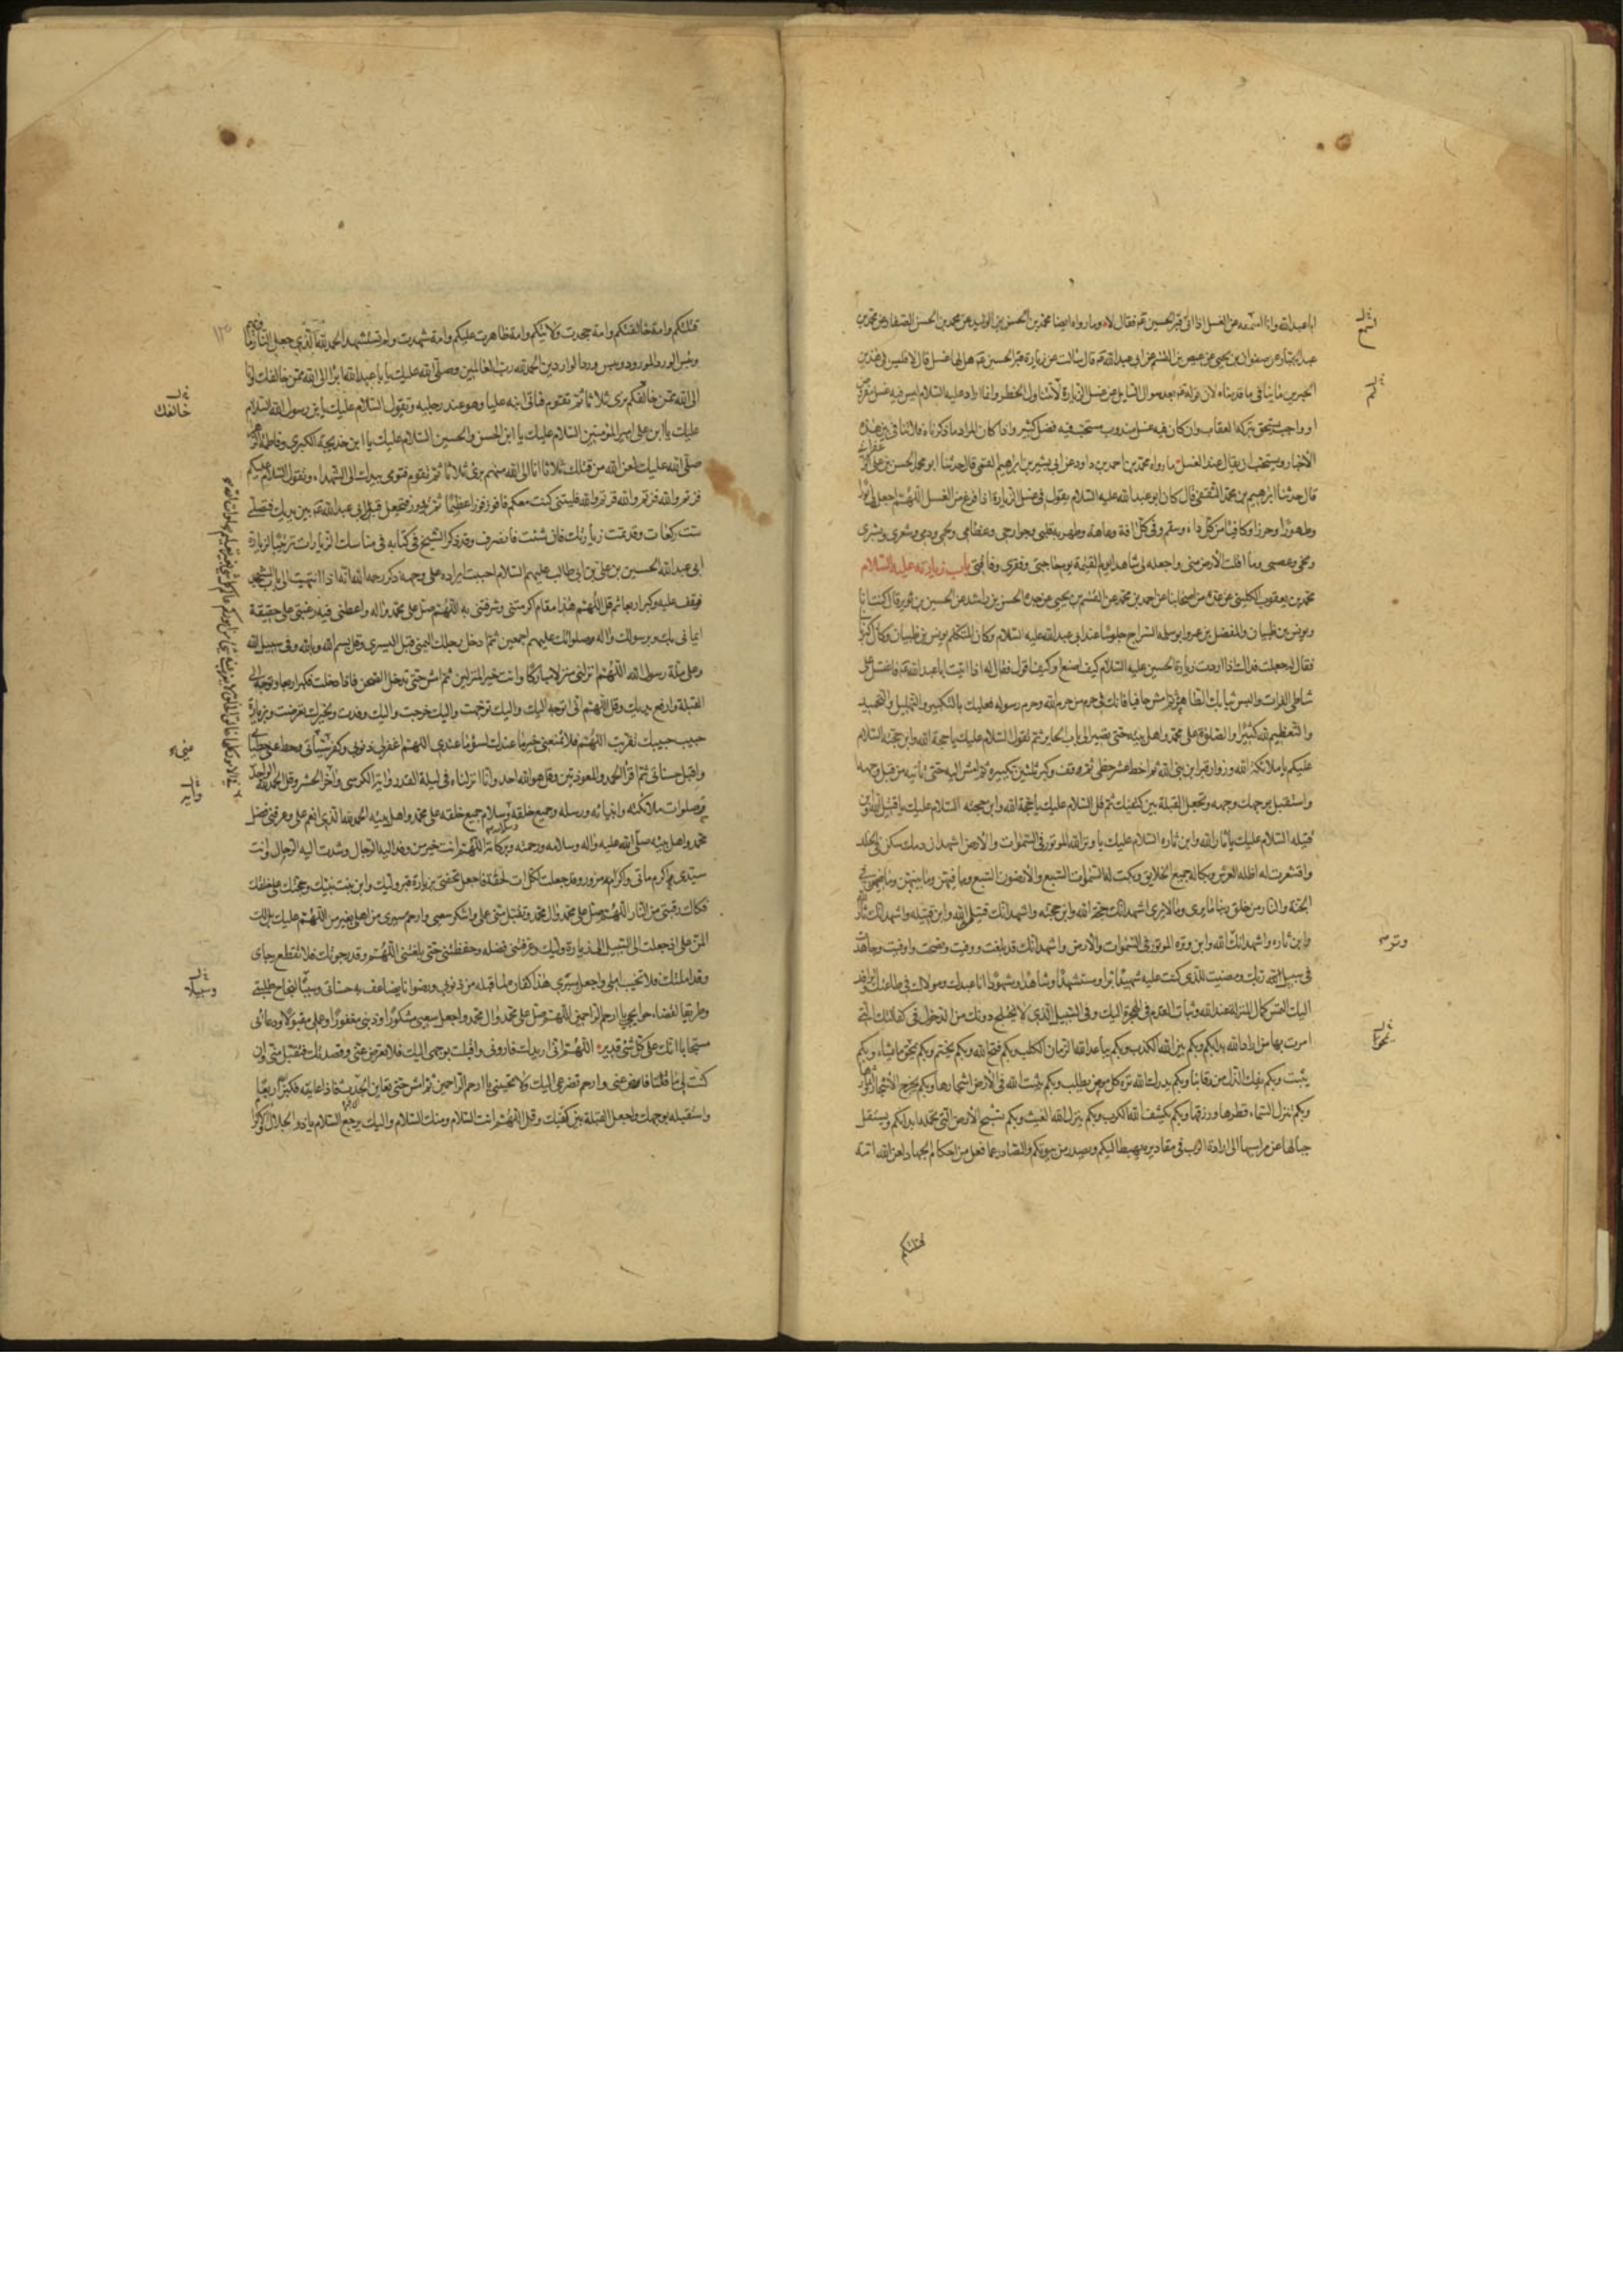 ابا عبد الله وانا اسمعه عن الغسل اذا اتى قبر الحسين عم فقال لا وما رواه ايضا محمد بن الحسن بن الوليد عن محمد بن الحسن الصفار عن محمد بن
عبد الجبار عن صفوان بن يحيى عن عيص بن القسم عن ابى عبد الله عم قال سالت عن زيارة قبر الحسين عم هل لها غسل قال لا فليس فى هذين
الخبرين ما ينافى ما قدمناه لان قوله عم بعد سوال السايل عن غسل الزيارة لا
او واجب يستحق بتركه العقاب وان كان فيه غسل مندوب مستحب فيه فضل كثير واذا كان المراد ما ذكرناه فلا تنافى بين هذه
الاخبار ويستحب ان يقال عند الغسل ما رواه محمد بن احمد بن داود عن ابى بشير بن ابراهيم القمى قال حدثنا ابو محمد الحسن بن على
قال حدثنا ابرهيم بن محمد الثقفى قال كان ابو عبد الله عليه السلام يقول فى غسل الزيارة اذا فرغ من الغسل اللهم اجعله لى نورا
وطهورا وحرزا وكافيا من كل داء وسقم وفى كل افة وعاهة وطهر به قلبى وجوارحى وعظامى ولحمى ودمى وشعرى وبشرى
ومخى وعصبى وما اقلت الارض منى واجعله لى شاهدا يوم القيمة يوم حاجتى وفقرى وفاقتى باب زيارته عليه السلام
محمد بن يعقوب الكلينى عن عدة من اصحابنا عن احمد بن محمد عن القسم بن يحيى عن جده الحسن بن راشد عن الحسين بن ثوير قال كنت انا
ويونس بن ظبيان والمفضل بن عمر وابو سلمة السراج جلوسا عند ابى عبد الله عليه السلام وكان المتكلم يونس بن ظبيان وكان اكبرنا
فقال له جعلت فداك اذا اردت زيارة الحسين عليه السلام كيف اصنع وكيف اقول فقال له اذا اتيت ابا عبد الله عم فاغتسل على
شاطى الفرات والبس ثيابك الطاهرة ثم امش حافيا فانك فى حرم من حرم الله وحرم رسوله فعليك بالتكبير والتهليل والتمجيد
والتعظيم لله كثيرا والصلوة على محمد واهل بيته حتى تصير الى باب الحاير ثم تقول السلام عليك يا حجة الله وابن حجته السلام
عليكم يا ملائكة الله وزوار قبر ابن نبى الله ثم اخط عشر خطى ثم قف وكبر ثلثين تكبيرة ثم امش اليه حتى تاتيه من قبل وجهه
واستقبل بوجهك وجهه وتجعل القبلة بين كتفيك ثم قل السلام عليك يا حجة الله وابن حجته السلام عليك يا قتيل الله وابن
قتيله السلام عليك يا ثار الله وابن ثاره السلام عليك يا وتر الله الموتور فى السموات والارض اشهد ان دمك سكن فى الخلد
واقشعرت له اظلة العرش وبكا له جميع الخلايق وبكت له السموات السبع والارضون السبع وما فيهن وما بينهن ومن يتقلب فى
الجنة والنار من خلق ربنا ما يرى وما لا يرى اشهد انك حجة الله وابن حجته واشهد انك قتيل الله وابن قتيله واشهد انك ثار الله
وابن ثاره واشهد انك الله وابن وتره الموتور فى السموات والارض واشهد انك قد بلغت ونصحت ووفيت واوفيت وجاهدت
فى سبيل ربك ومضيت للذى كنت عليه شهيدا ومستشهدا وشاهدا ومشهودا انا عبدك ومولاك وفى طاعتك والوافد
اليك التمس كمال المنزلة عند الله وثبات القدم فى الهجرة اليك وفى السبيل الذى لا يختلج دونك من الدخول فى كفالتك التى
امرت بها من اراد الله بدا بكم وبكم يبين الله الكذب وبكم يباعد الله الزمان الكلب وبكم فتح الله وبكم يختم وبكم يمحو ما يشاء وبكم
يثبت وبكم يفك الذل من رقابنا وبكم يدرك الله ترة كل مومن يطلب وبكم تنبت الارض اشجارها وبكم تخرج الاشجار اثمارها
وبكم تنزل السماء قطرها ورزقها وبكم يكشف الله الكرب وبكم ينزل الله الغيث وبكم تسبح الارض التى تحمل ابدانكم ويستقل
جبالها عن مراسيها الى ارادة الرب فى مقادير تهبط اليكم وتصدر من بيوتكم والصادر عما فصل من احكام العباد لعن الله امة
قتلتكم
قتلتكم وامة خالفتكم وامة جحدت ولايتكم وامة ظاهرت عليكم وامة شهدت ولم تستشهد الحمد لله الذى جعل النار
وبئس الورد المورود وبئس ورد الواردين الحمد لله رب العالمين وصلى الله عليك يا ابا عبد الله انا برا الى الله ممن خالفك انا
الى الله ممن خالفكم برى ثلاثا ثم تقوم فتاتى ابنه عليا وهو عند رجليه وتقول السلام عليك يابن رسول الله السلام
عليك يا ابن على امير المومنين السلام عليك يا ابن الحسن والحسين السلام عليك يا ابن خديجة الكبرى وفاطمة الزهراء
صلى الله عليك لعن الله من قتلك ثلاثا انا الى الله منهم برى ثلاثا ثم تقوم فتومى بيدك الى الشهداء وتقول السلام عليكم
فزتم والله فزتم والله فزتم والله فليتنى كنت معكم فافوز فوزا عظيما ثم تدور فتجعل قبر ابى عبد الله عم بين يديك فتصلى
ست ركعات وقد تمت زيارتك فان شئت فانصرف وقد ذكر الشيخ فى كتابه فى مناسك الزيارات ترتيبا لزيارة
ابى عبد الله الحسين بن على بن ابى طالب عليهم السلام احببت ايراده على وجهه ذكر رحمه الله انه اذا انتهيت الى باب المشهد
فقف عليه وكبر اربعا ثم قل اللهم هذا مقام اكرمتنى وشرفتنى به اللهم صل على محمد واله واعطنى فيه رغبتى على حقيقة
ايمانى بك وبرسولك واله وصلواتك عليهم اجمعين ثم ادخل رجلك اليمنى قبل اليسرى وقل بسم الله وبالله وفى سبيل الله
وعلى ملة رسول الله اللهم انزلنى منزلا مباركا وانت خير المنزلين ثم امش حتى تدخل الصحن فاذا دخلت فكبر اربعا وتوجه الى
القبلة وارفع يديك وقل اللهم انى اتوجه اليك واليك توجهت واليك خرجت واليك وفدت ولخيرك تعرضت وبزيارة
حبيب حبيبك تقربت اللهم فلا تمنعنى خير ما عندك لسوء ما عندى اللهم اغفر لى ذنوبى وكفر سيئاتى وحط عنى خطيئاتى
واقبل حسناتى ثم اقرا الحمد والمعوذتين وقل هو الله احد وانا انزلناه فى ليلة القدر واية الكرسى واخر الحشر وقل الحمد لله
وصلوات ملائكته وانبيائه ورسله وجميع خلقه وسلام جميع خلقه على محمد واهل بيته الحمد لله الذى انعم على وعرفنى فضل
محمد واهل بيته صلى الله عليه واله وسلامه ورحمته وبركاته اللهم انت خير من وفد اليه الرجال وشدت اليه الرحال وانت
سيدى اكرم ماتى واكرم مزور وقد جعلت لكل ات تحفة فاجعل تحفتى بزيارة قبر وليك وابن بنت نبيك وحجتك على خلقك
فكاك رقبتى من النار اللهم صل على محمد وال محمد وتقبل منى عملى واشكر سعيى وارحم مسيرى من اهلى بغير من اللهم عليك بل لك
المن على اذ جعلت لى السبيل الى زيارة وليك وعرفتنى فضله وحفظتنى حتى بلغتنى اللهم وقد رجوتك فلا تقطع رجاى
وقد املتك فلا تخيب املى واجعل مسيرى هذا كفارة لما قبله من ذنوبى ورضوانا يضاعف به حسناتى وسببا لنجاح طلبتى
وطريقا لقضاء حوايجى يا ارحم الراحمين اللهم صل على محمد وال محمد واجعل سعيى مشكورا وذنبى مغفورا وعملى مقبولا ودعائى
مستجابا انك على كل شىء قدير اللهم انى اريدك فاردنى واقبلت بوجهى اليك فلا تعرض عنى وقصدتك فتقبل منى وان
كنت لى ماقتا فارض عنى وارحم تضرعى اليك ولا تخيبنى يا ارحم الراحمين ثم امش حتى تعاين الجدث فاذا عاينته فكبر اربعا
واستقبله بوجهك واجعل القبلة بين كتفيك وقل اللهم انت السلام ومنك السلام واليك يرجع السلام يا ذا الجلال والاكرام
خالفك
وسبيلا